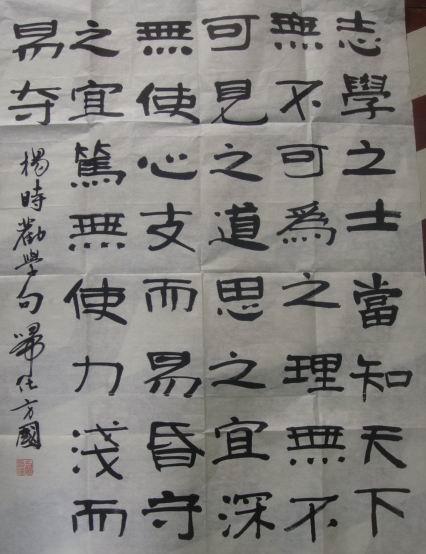 志學之士當知天下
無不可爲之理無不
可見之道思之宜深
無使心支而易昏守
之宜篤無使力淺而
易夺
楊時勸學句 仕方國